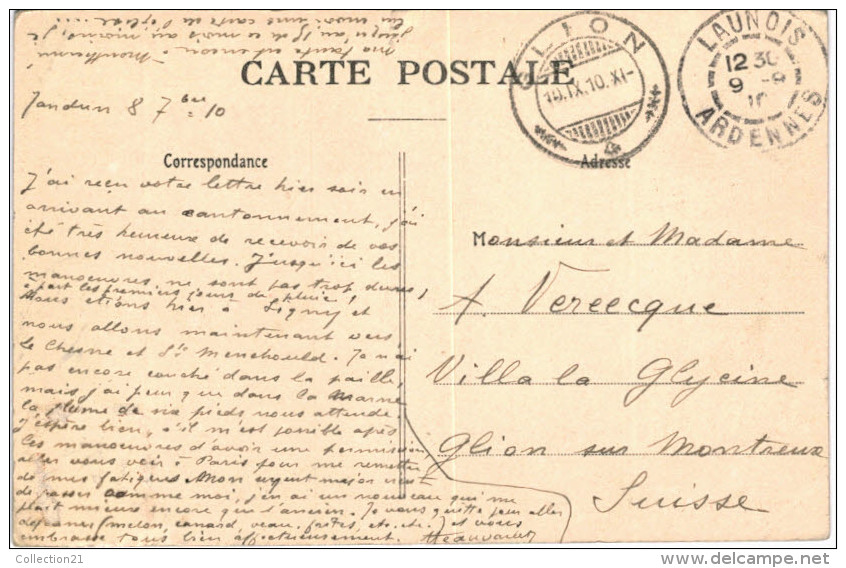 CARTE POSTALE
GLION
10.IX.10.XI-
LAUNOIS
12 30
9 -9
10
ARDENNES
Jandun 8 7bre 10
Correspondance
Adresse
J'ai reçu votre lettre hier soir en
arrivant au cantonnement, j'ai
été très heureux de recevoir de vos
bonnes nouvelles. Jusqu'ici les
manoeuvres ne sont pas trop dures,
à part les premiers jours de pluie,
Nous étions hier à Signy et
nous allons maintenant vers
le Chesne et Ste Menehould. Je n'ai
pas encore couché dans la paille,
mais j'ai peur que dans la Marne
la plume de six pieds nous attende.
J'espère bien, s'il m'est possible après
les manoeuvres d'avoir une permission
aller vous voir à Paris pour me remettre
de mes fatigues. Mon sergent major vient
de passer comme moi, j'en ai un nouveau qui me
plait mieux encore que l'ancien. Je vous quitte pour aller
déjeuner (melon, canard, veau, frites, etc. etc.) et vous
embrasse tous bien affectueusement.
ma santé est encore
jusqu'au 18 de ce mois au moins, je
envoie une carte de l'église
Monsieur et Madame
A. Vereecque
Villa la Glycine
Glion sur Montreux
Suisse
Collection21
delcampe.net